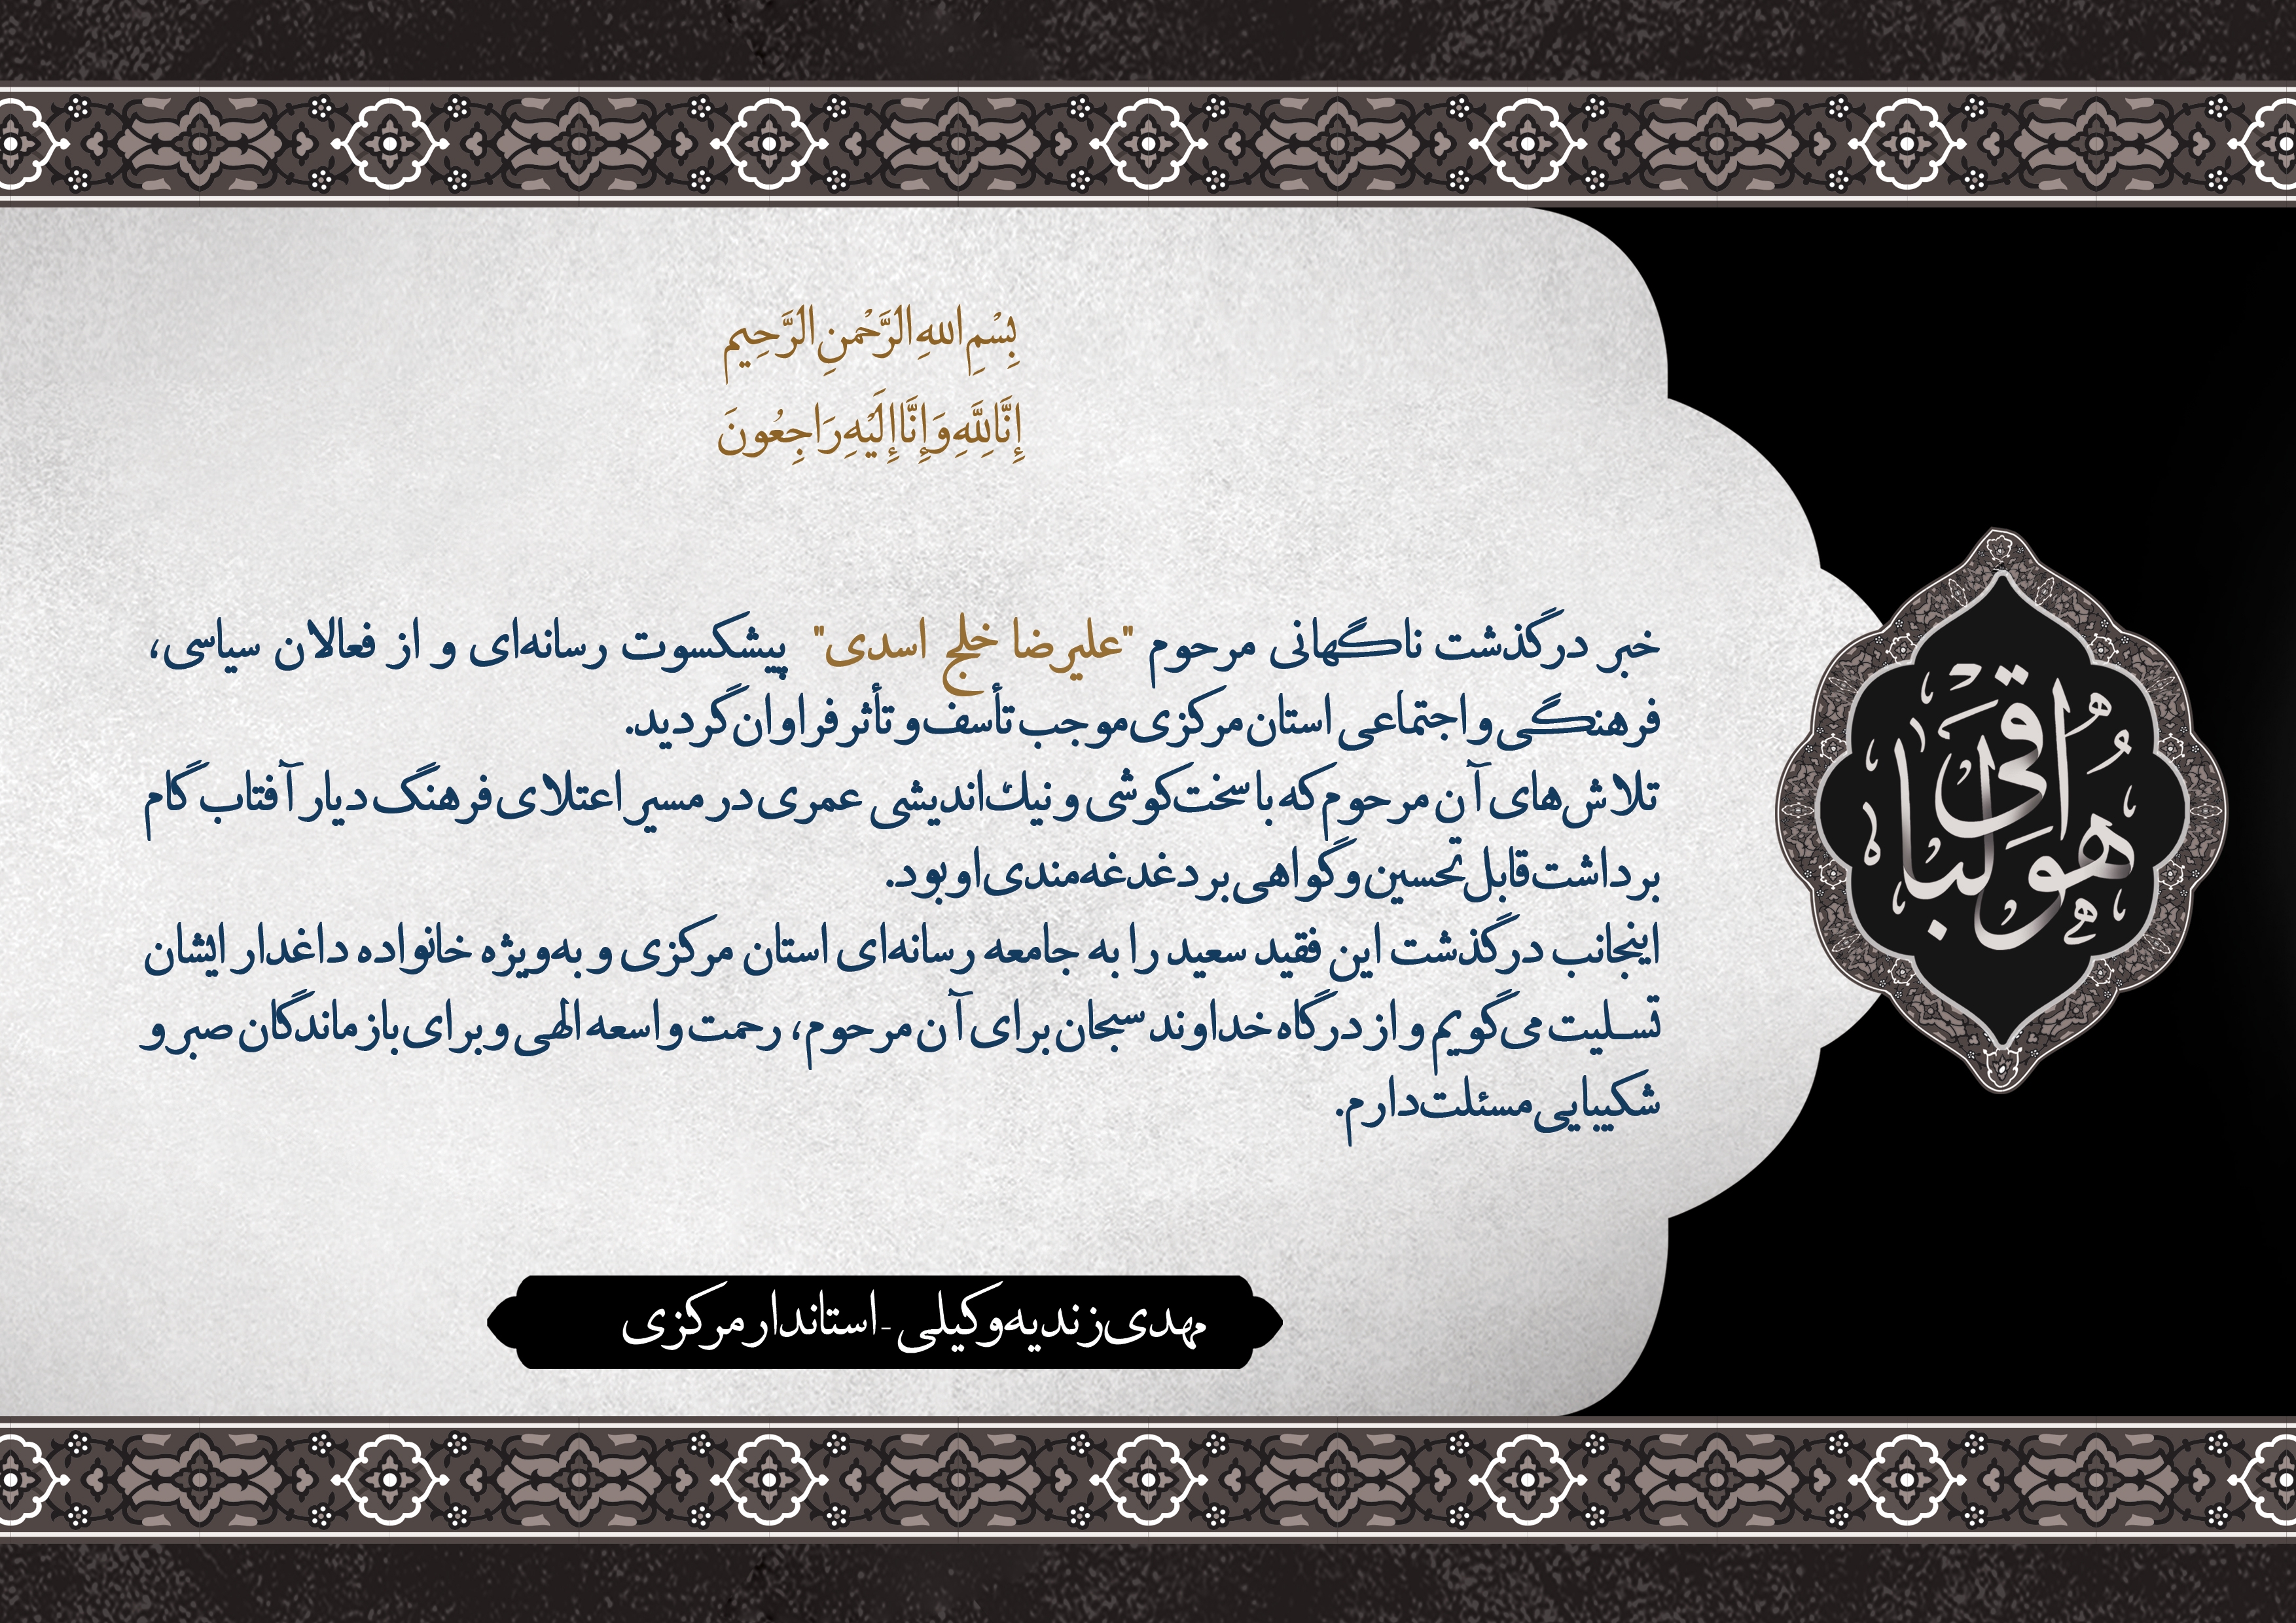 بِسْمِ اللهِ الرَّحْمنِ الرَّحِیم
إِنَّا لِلَّهِ وَإِنَّا إِلَيْهِ رَاجِعُونَ
خبر درگذشت ناگهانی مرحوم "علیرضا خلج اسدی" پیشکسوت رسانه‌ای و از فعالان سیاسی،
فرهنگی و اجتماعی استان مرکزی موجب تأسف و تأثر فراوان گردید.
تلاش‌های آن مرحوم که با سخت‌کوشی و نیک‌اندیشی عمری در مسیر اعتلای فرهنگ دیار آفتاب گام
برداشت قابل تحسین و گواهی بر دغدغه‌مندی او بود.
اینجانب درگذشت این فقید سعید را به جامعه رسانه‌ای استان مرکزی و به‌ویژه خانواده داغدار ایشان
تسلیت می‌گویم و از درگاه خداوند سبحان برای آن مرحوم، رحمت واسعه الهی و برای بازماندگان صبر و
شکیبایی مسئلت دارم.
هُوَ الباقی
مهدی زندیه‌وکیلی - استاندار مرکزی